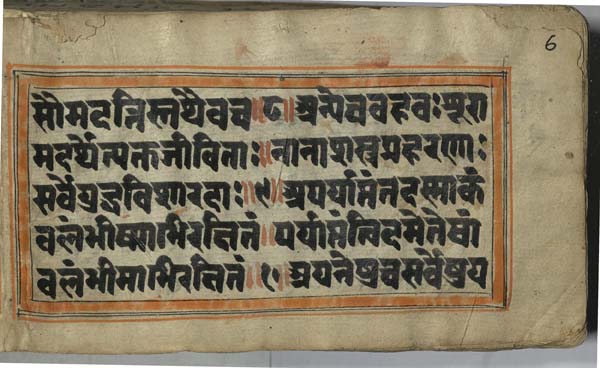 6
सौमदत्तिस्तथैवच॥८॥अन्येचबहवःशूरा
मदर्थेत्यक्तजीविताः॥नानाशस्त्रप्रहरणाः
सर्वेयुद्धविशारदाः॥९॥अपर्याप्तंतदस्माकं
बलंभीष्माभिरक्षितं॥पर्याप्तंत्विदमेतेषां
बलंभीमाभिरक्षितं॥१०॥अयनेषुचसर्वेषुय